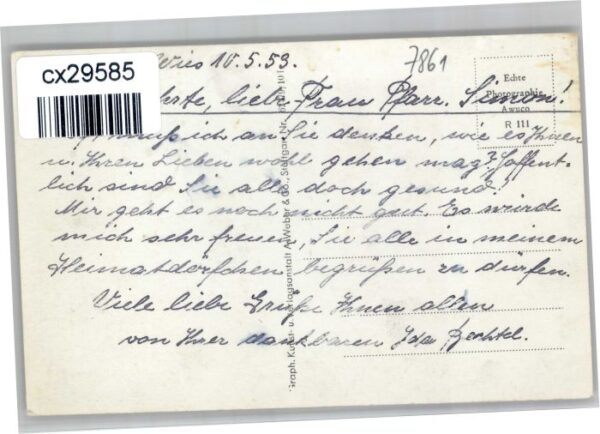 cx29585
Wies 10.5.53.
7861
Echte
Photographie
Awuco
R 111
liebe Frau Pfarr. Simon!
muß ich an Sie denken, wie es Ihnen
u. Ihren Lieben wohl gehen mag? Hoffent-
lich sind Sie alle doch gesund!
Mir geht es noch nicht gut. Es würde
mich sehr freuen, Sie alle in meinem
Heimatdörfchen begrüßen zu dürfen.
Viele liebe Grüße Ihnen allen
von Ihrer dankbaren Ida
Graph. Kunst- u. Verlagsanstalt A. Weber & Co., Stuttgart